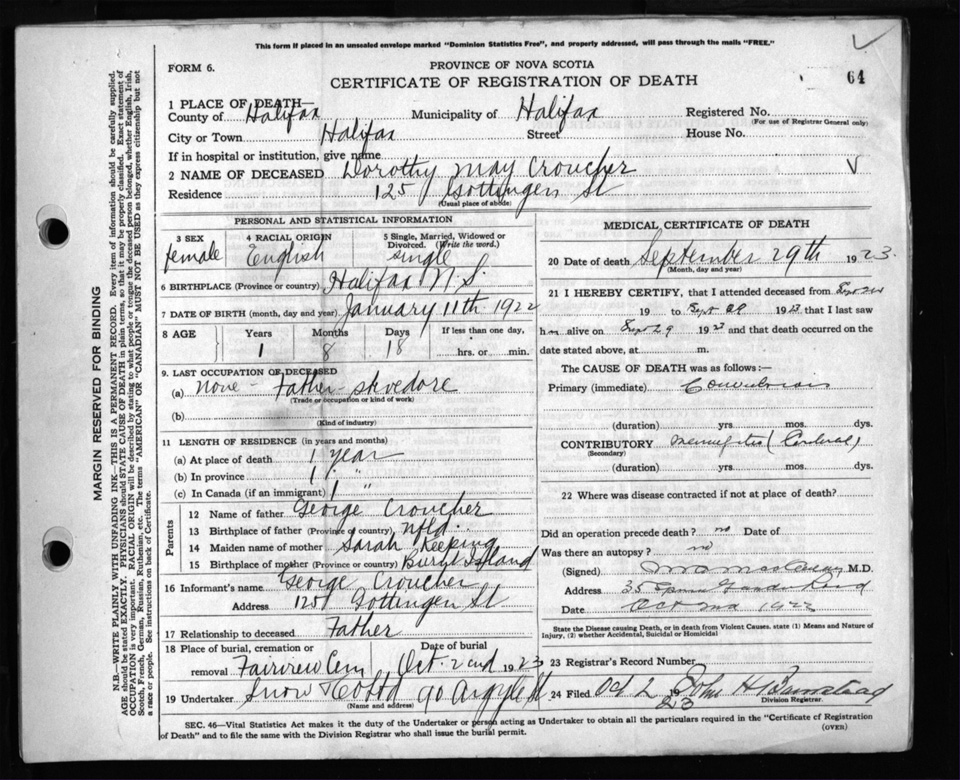 This form if placed in an unsealed envelope marked "Dominion Statistics Free", and properly addressed, will pass through the mails "FREE."
FORM 6.
PROVINCE OF NOVA SCOTIA
CERTIFICATE OF REGISTRATION OF DEATH
64
1 PLACE OF DEATH—
County of Halifax Municipality of Halifax Registered No.
(For use of Registrar General only)
City or Town Halifax Street House No.
If in hospital or institution, give name
2 NAME OF DECEASED Dorothy May Croucher
Residence 125 Gottingen St
(Usual place of abode)
PERSONAL AND STATISTICAL INFORMATION
3 SEX female
4 RACIAL ORIGIN English
5 Single, Married, Widowed or Divorced. (Write the word.) single
6 BIRTHPLACE (Province or country) Halifax N.S.
7 DATE OF BIRTH (month, day and year) January 11th 1922
8 AGE Years Months Days If less than one day,
1 8 18 hrs. or min.
9. LAST OCCUPATION OF DECEASED
(a) None - Father - stvedore
(Trade or occupation or kind of work)
(b)
(Kind of industry)
11 LENGTH OF RESIDENCE (in years and months)
(a) At place of death 1 year
(b) In province 1 "
(c) In Canada (if an immigrant) 1 "
Parents
12 Name of father George Croucher
13 Birthplace of father (Province or country) Nfld.
14 Maiden name of mother Sarah Keeping
15 Birthplace of mother (Province or country) Island
16 Informant's name George Croucher
Address 125 Gottingen St
17 Relationship to deceased Father
18 Place of burial, cremation or removal Fairview Cem
Date of burial Oct. 2nd 1923
19 Undertaker Snow & Co Ltd 90 Argyle St
(Name and address)
MEDICAL CERTIFICATE OF DEATH
20 Date of death September 29th 1923.
(Month, day and year)
21 I HEREBY CERTIFY, that I attended deceased from Sept
19 to Sept 29 1923 that I last saw
h alive on Sept 29 1923 and that death occurred on the
date stated above, at m.
The CAUSE OF DEATH was as follows:—
Primary (immediate) Convulsions
(duration) yrs. mos. dys.
CONTRIBUTORY Meningitis (Cerebral)
(Secondary)
(duration) yrs. mos. dys.
22 Where was disease contracted if not at place of death?
Did an operation precede death? no Date of
Was there an autopsy? no
(Signed) M.D.
Address 35 Road
Date Oct 2nd 1923
State the Disease causing Death, or in death from Violent Causes, state (1) Means and Nature of Injury, (2) whether Accidental, Suicidal or Homicidal
23 Registrar's Record Number
24 Filed Oct 2 1923 John H Burnstead
Division Registrar.
SEC. 46—Vital Statistics Act makes it the duty of the Undertaker or person acting as Undertaker to obtain all the particulars required in the "Certificate of Registration
of Death" and to file the same with the Division Registrar who shall issue the burial permit.
(OVER)
MARGIN RESERVED FOR BINDING
N.B—WRITE PLAINLY WITH UNFADING INK—THIS IS A PERMANENT RECORD. Every item of information should be carefully supplied.
AGE should be stated EXACTLY. PHYSICIANS should STATE CAUSE OF DEATH in plain terms, so that it may be properly classified. Exact statement of
OCCUPATION is very important. RACIAL ORIGIN will be described by stating to what people or tongue the deceased person belonged, whether English, Irish,
Scotch, French, German, Russian, Ruthenian, etc. The terms "AMERICAN" or "CANADIAN" MUST NOT BE USED as they express citizenship but not
a race or people. See instructions on back of Certificate.